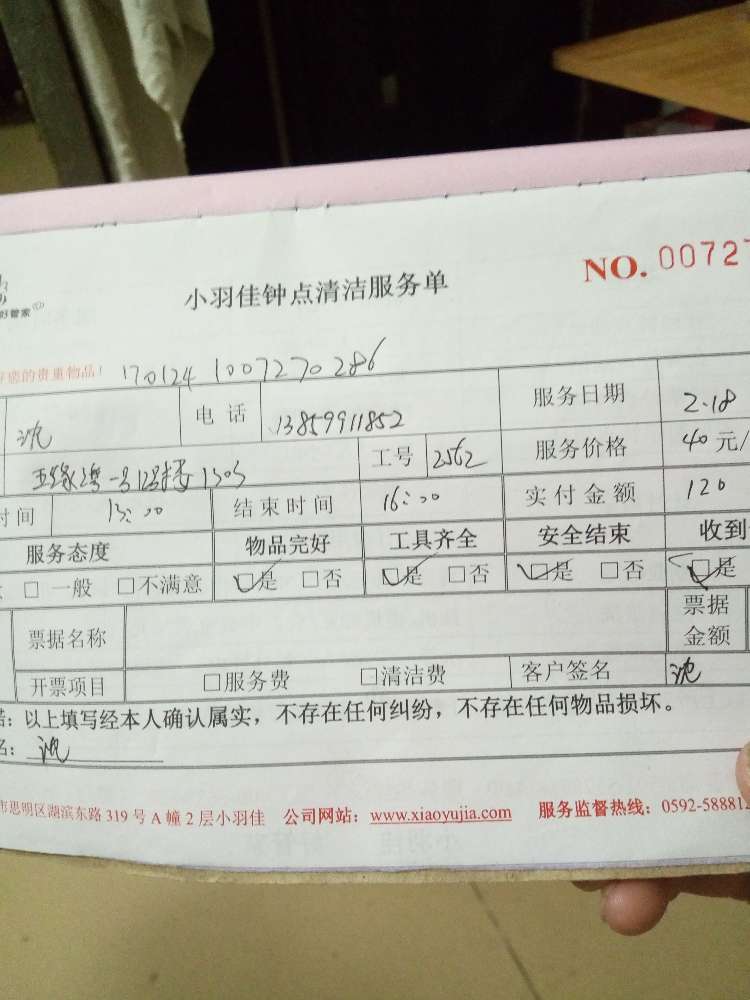 好管家
小羽佳钟点清洁服务单
NO. 00727
的贵重物品! 1701241007270286
沈 电话 13859911852 服务日期 2.18
五缘湾一号12号楼1303 工号 2562 服务价格 40元/
时间 13:00 结束时间 16:00 实付金额 120
服务态度 物品完好 工具齐全 安全结束 收到
□一般 □不满意 □是 □否 □是 □否 □是 □否 □是
票据名称 票据金额
开票项目 □服务费 □清洁费 客户签名 沈
:以上填写经本人确认属实，不存在任何纠纷，不存在任何物品损坏。
名: 沈
市思明区湖滨东路319号A幢2层小羽佳 公司网站: www.xiaoyujia.com 服务监督热线: 0592-588812